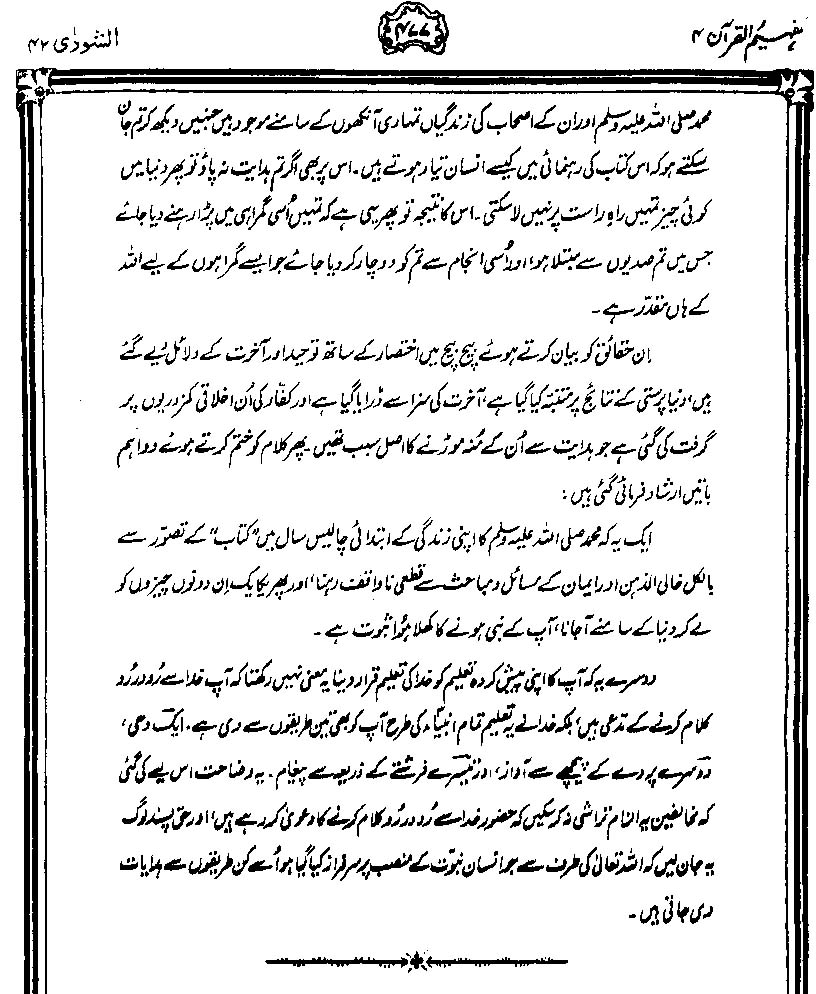 تفہیم القرآن ۴
۴۷۷
الشورٰی ۴۲
محمد صلی اللہ علیہ وسلم اور ان کے اصحاب کی زندگیاں تمہاری آنکھوں کے سامنے موجود ہیں جنہیں دیکھ کر تم جان
سکتے ہو کہ اس کتاب کی رہنمائی میں کیسے انسان تیار ہوتے ہیں۔ اس پر بھی اگر تم ہدایت نہ پاؤ تو پھر دنیا میں
کوئی چیز تمہیں راہ راست پر نہیں لا سکتی۔ اس کا نتیجہ تو پھر یہی ہے کہ تمہیں اُسی گمراہی میں پڑا رہنے دیا جائے
جس میں تم صدیوں سے مبتلا ہو، اور اُسی انجام سے تم کو دوچار کر دیا جائے جو ایسے گمراہوں کے لیے اللہ
کے ہاں مقدر ہے۔
اِن حقائق کو بیان کرتے ہوئے بیچ بیچ میں اختصار کے ساتھ توحید اور آخرت کے دلائل دیے گئے
ہیں، دنیا پرستی کے نتائج پر متنبہ کیا گیا ہے، آخرت کی سزا سے ڈرایا گیا ہے اور کفّار کی اُن اخلاقی کمزوریوں پر
گرفت کی گئی ہے جو ہدایت سے اُن کے مُنہ موڑنے کا اصل سبب تھیں۔ پھر کلام کو ختم کرتے ہوئے دو اہم
باتیں ارشاد فرمائی گئی ہیں:
ایک یہ کہ محمد صلی اللہ علیہ وسلم کا اپنی زندگی کے ابتدائی چالیس سال میں "کتاب" کے تصوّر سے
بالکل خالی الذہن اور ایمان کے مسائل و مباحث سے قطعی ناواقف رہنا، اور پھر یکایک اِن دونوں چیزوں کو
لے کر دنیا کے سامنے آجانا، آپ کے نبی ہونے کا کھلا ہُوا ثبوت ہے۔
دوسرے یہ کہ آپ کا اپنی پیش کردہ تعلیم کو خدا کی تعلیم قرار دینا یہ معنی نہیں رکھتا کہ آپ خدا سے رُو در رُو
کلام کرنے کے مدعی ہیں، بلکہ خدا نے یہ تعلیم تمام انبیاء کی طرح آپ کو بھی تین طریقوں سے دی ہے۔ ایک وحی،
دوسرے پردے کے پیچھے سے آواز، اور تیسرے فرشتے کے ذریعہ سے پیغام۔ یہ وضاحت اس لیے کی گئی
کہ مخالفین یہ الزام تراشی نہ کر سکیں کہ حضور خدا سے رُو در رُو کلام کرنے کا دعویٰ کر رہے ہیں، اور حق پسند لوگ
یہ جان لیں کہ اللہ تعالیٰ کی طرف سے جو انسان نبوّت کے منصب پر سرفراز کیا گیا ہو اُسے کن طریقوں سے ہدایات
دی جاتی ہیں۔